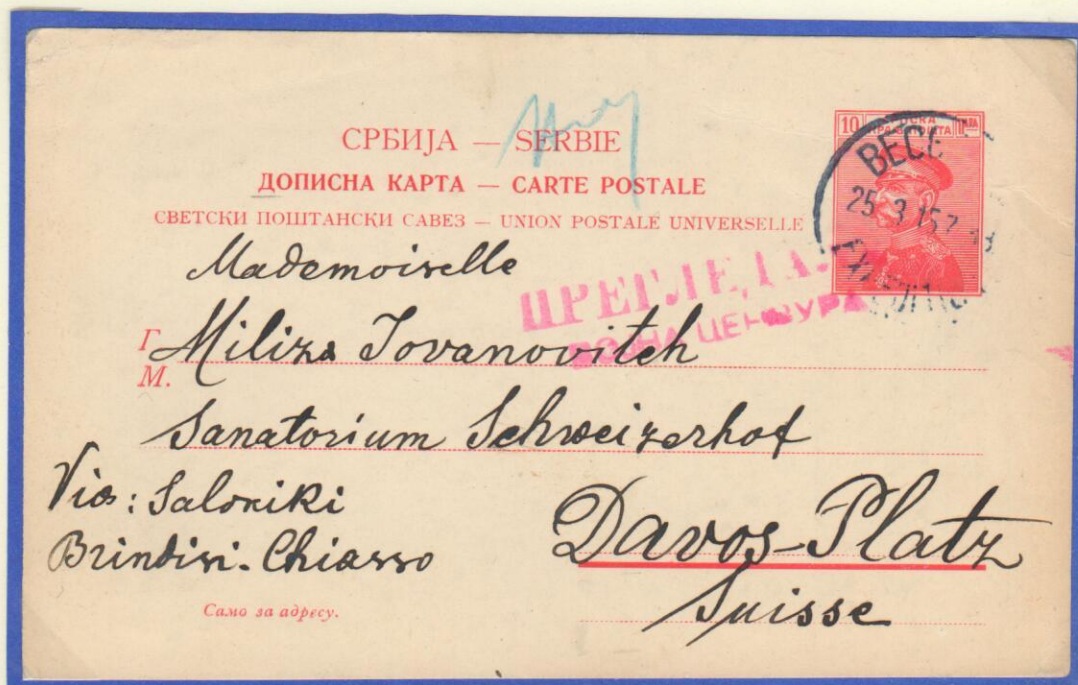 СРБИЈА — SERBIE
ДОПИСНА КАРТА — CARTE POSTALE
СВЕТСКИ ПОШТАНСКИ САВЕЗ — UNION POSTALE UNIVERSELLE
10
25 3 15 7
Mademoiselle
ПРЕГЛЕДА
ЦЕНЗУРА
Г.
Miliza Jovanovitch
М.
Sanatorium Schweizerhof
Via: Saloniki
Brindisi-Chiasso
Davos-Platz
Suisse
Само за адресу.